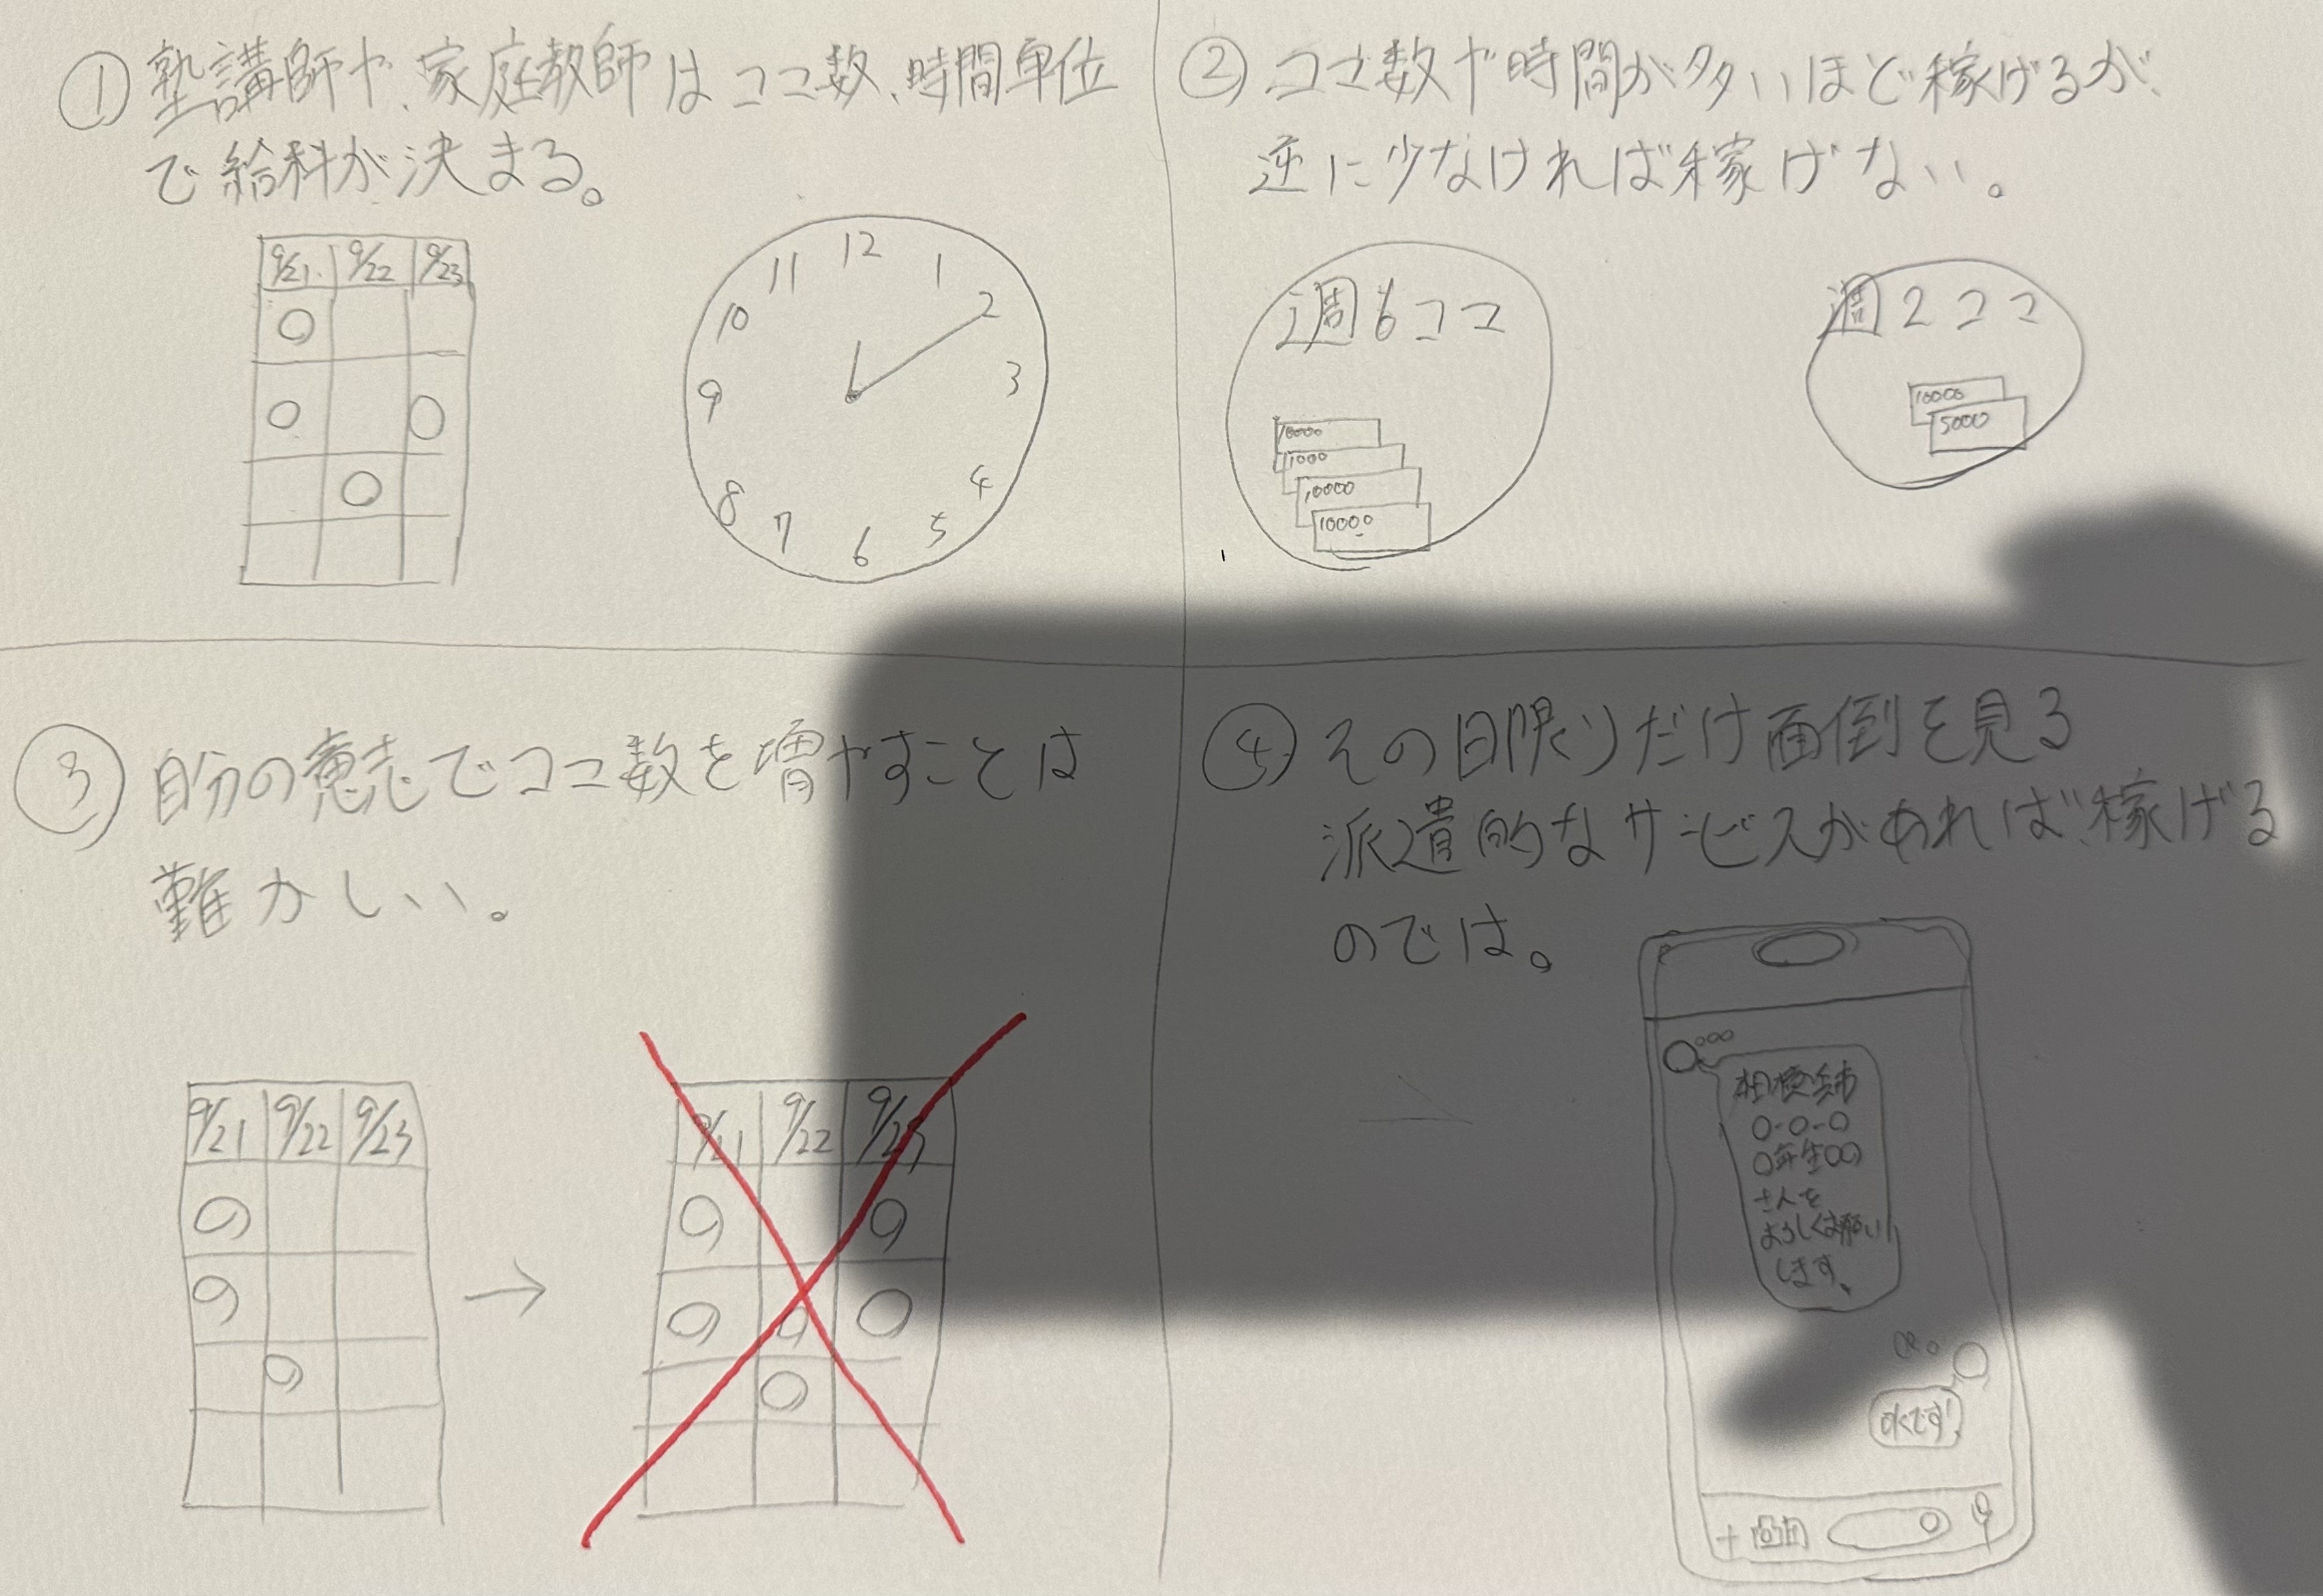 ① 塾講師や、家庭教師はココ数、時間単位
で給料が決まる。
9/21 9/22 9/23
12
1
2
3
4
5
6
7
8
9
10
11
② コマ数や時間が多いほど稼げるが、
逆に少なければ稼げない。
週6ココ
10000
10000
10000
週2ココ
10000
5000
③ 自分の意志でココ数を増やすことは
難かしい。
9/21 9/22 9/23
9/21 9/22 9/23
④ その日限りだけ面倒を見る
派遣的なサービスがあれば、稼げる
のでは。
相模原市
○-○-○
○年生○○
さんを
よろしくお願い
します。
OKです!
+